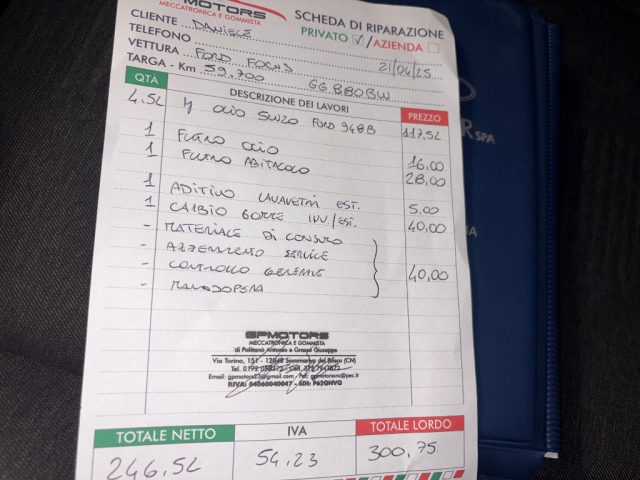 MOTORS
MECCATRONICA E GOMMISTA
SCHEDA DI RIPARAZIONE
PRIVATO / AZIENDA
CLIENTE - DANIELE
TELEFONO
VETTURA FORD FOCUS 21/04/25
TARGA - Km 59.700 GG880BW
QTÀ DESCRIZIONE DEI LAVORI PREZZO
4.5L OLIO 5W20 FORD 948B 117,52
1 FILTRO OLIO 16,00
1 FILTRO ABITACOLO 28,00
1 ADITIVO LAVAVETRI EST. 5,00
1 CAMBIO GOMME INV/EST. 40,00
- MATERIALE DI CONSUMO
- AZZERAMENTO SERVICE
- CONTROLLO GENERALE 40,00
- MANODOPERA
GPMOTORS
MECCATRONICA E GOMMISTA
di Politanò Antonio e Grasso Giuseppe
Via Torino, 151 - 12048 Sommariva del Bosco (CN)
Tel. 0172
Email: gpmotors23@gmail.com
P.IVA: 04060040047 - SDI: P62QHVQ
TOTALE NETTO IVA TOTALE LORDO
246.52 54,23 300,75
SPA